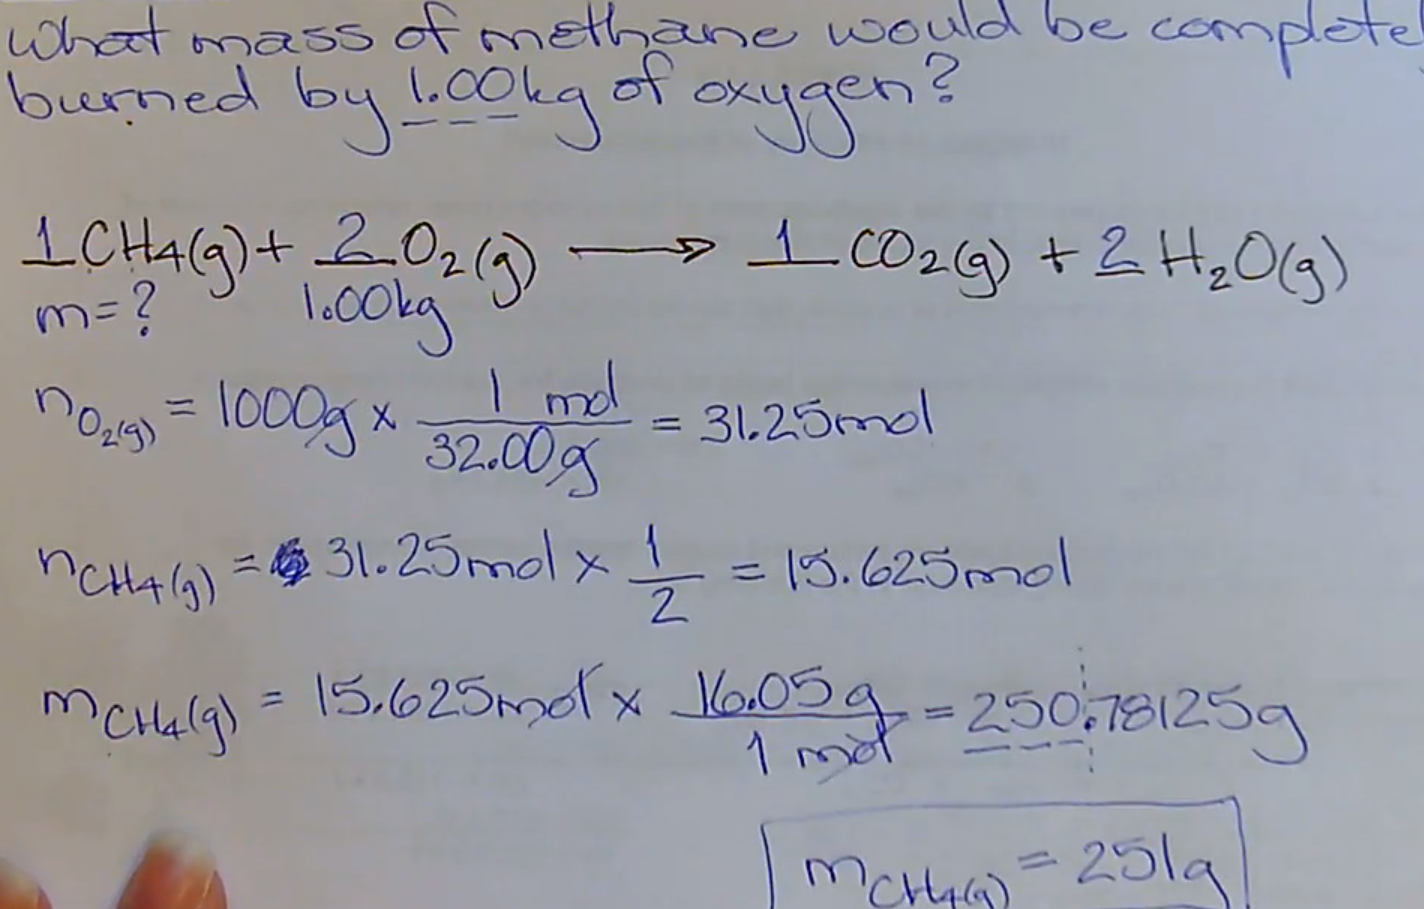 What mass of methane would be complete
burned by 1.00kg of oxygen?
1 CH4(g) + 2 O2(g) → 1 CO2(g) + 2 H2O(g)
m=? 1.00kg
nO2(g) = 1000g x 1 mol / 32.00g = 31.25mol
nCH4(g) = 31.25mol x 1/2 = 15.625mol
mCH4(g) = 15.625mol x 16.05g / 1 mol = 250.78125g
mCH4(g) = 251g